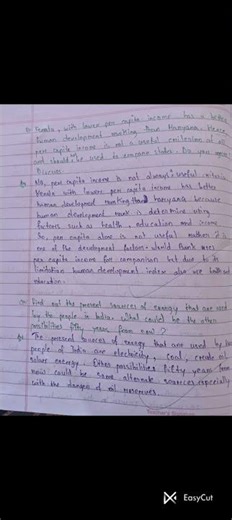 Kerala, with lower per capita income has a better
human development ranking than Haryana. Hence,
per capita income is not a useful criterion at all
and should not be used to compare states. Do you agree?
Discuss.
No, per capita income is not always useful criterion
Kerala with lower per capita income has better
human development ranking than Haryana because
human development rank is determine using
factors such as health, education and income
So, per capita alone is not useful rather it is
one of the development factors. World Bank uses
per capita income for comparison but due to its
limitation human development index also use health and
education.
Find out the present sources of energy that are used
by the people in India. What could be the other
possibilities fifty years from now?
The present sources of energy that are used by the
people of India are electricity, coal, crude oil
solar energy. Other possibilities fifty years from
now could be some alternate sources especially
with the danger of oil reserves.
EasyCut